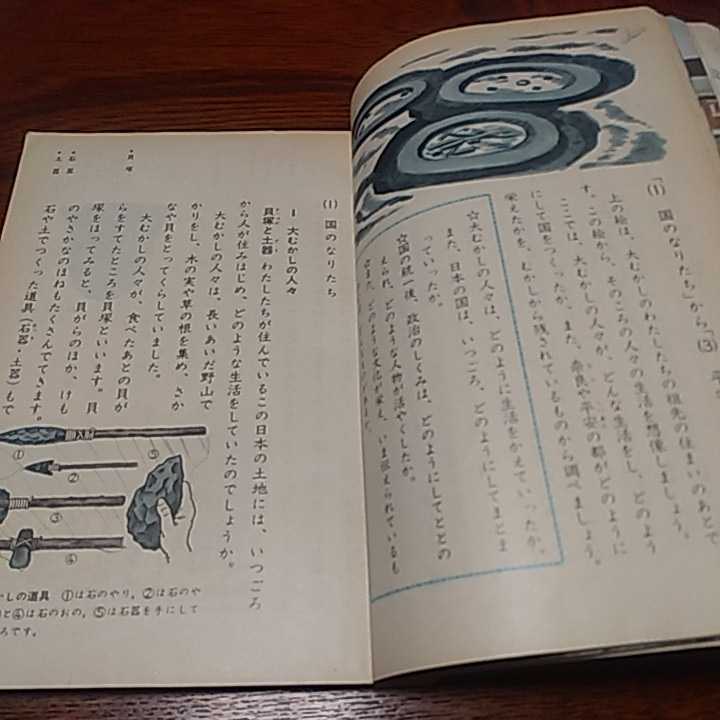 「(1) 国のなりたち」から「(3) 平
上の絵は、大むかしのわたしたちの祖先の住まいのあとで
す。この絵から、そのころの人々の生活を想像しましょう。
ここでは、大むかしの人々が、どんな生活をし、どのように
にして国をつくったか、また、奈良や平安の都がどのように
栄えたかを、むかしから残されているものから調べましょう。
☆大むかしの人々は、どのように生活をかえていったか。
また、日本の国は、いつごろ、どのようにしてまとま
っていったか。
☆国の統一後、政治のしくみは、どのようにしてととの
えられ、どのような人物が活やくしたか。
また、どのような文化が栄え、いま伝えられているも
(1) 国のなりたち
1 大むかしの人々
貝塚と土器 わたしたちが住んでいるこの日本の土地には、いつごろ
から人が住みはじめ、どのような生活をしていたのでしょうか。
大むかしの人々は、長いあいだ野山で
かりをし、木の実や草の根を集め、さか
なや貝をとってくらしていました。
大むかしの人々が、食べたあとの貝が
らをすてたところを貝塚といいます。貝
塚をほってみると、貝がらのほか、けも
のやさかなのほねもたくさんでてきます。
石や土でつくった道具(石器・土器)もで
•貝塚
•石器
•土器
①
②
③
④
⑤
かしの道具 ①は石のやり,②は石のや
と④は石のおの,⑤は石器を手にして
ろです。